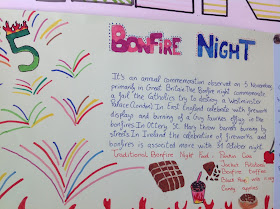 5
BONFIRE NIGHT
It's an annual commemoration observed on 5 November,
primarily in Great Britain. The Bonfire night commemorate
a fail the Catholics try to destroy a Westminster
Palace (London). In East England celebrate with
displays and burning of a Guy fawnes effigy on the
bonfires. In Ottery St. Mary throw barrels burning by
streets. In Ireland the celebration of fireworks and
bonfires is associted more with 31 October night.
Traditional Bonfire Night Food:
Parkin Cake
Jacket Potatoes
Bonfire toffee
Black Peas with vinegar
Candy apples